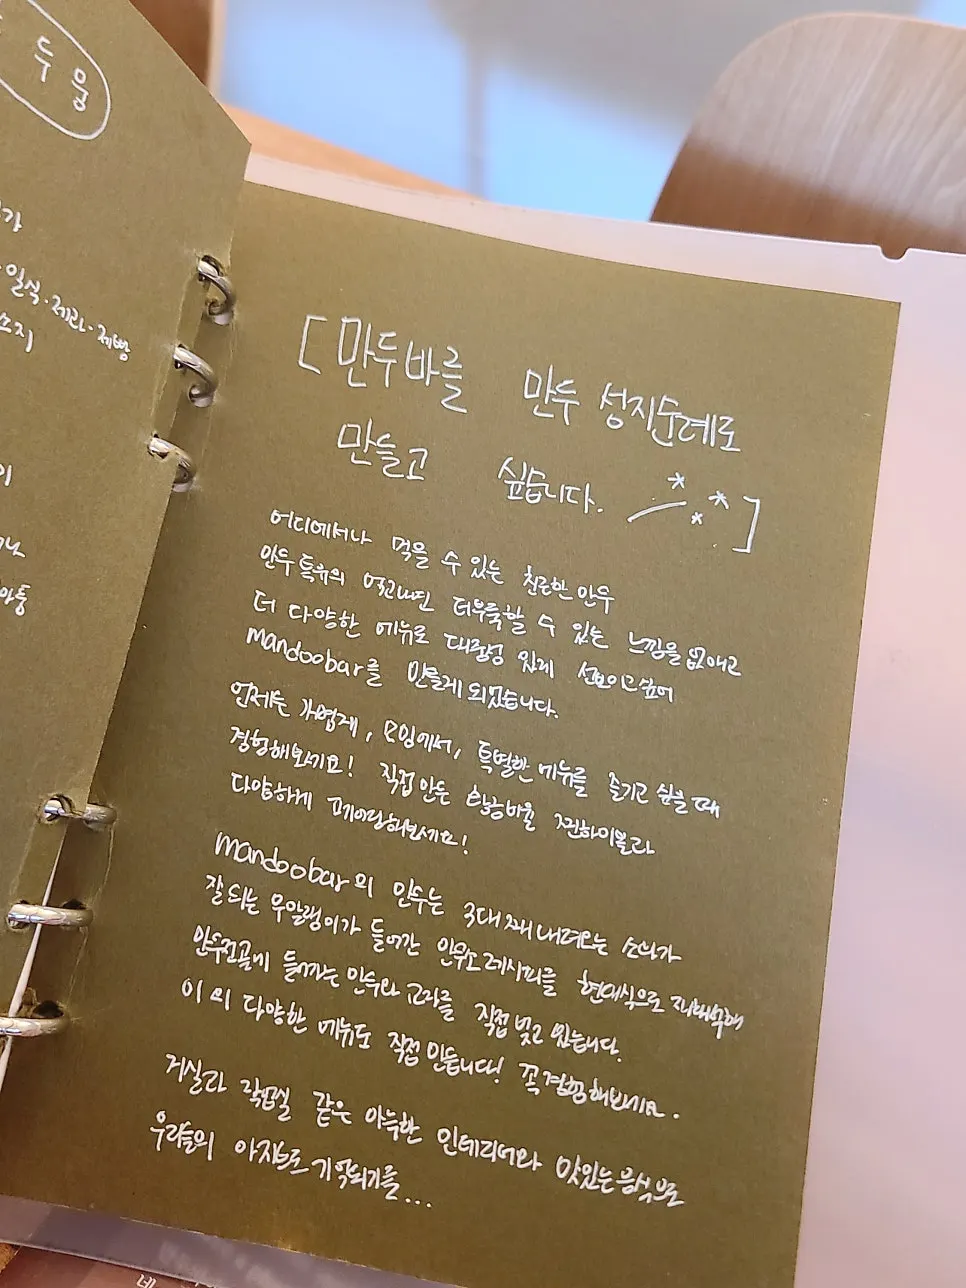 두 몸
가
일식·제과·제빵
소지
[만두바를 만두 성지순례로
만들고 싶습니다.]
어디에서나 먹을 수 있는 친근한 만두
만두 특유의 어딘가 더부룩할 수 있는 느낌을 없애고
더 다양한 메뉴로 대중성 있게 선보이고 싶어
mandoobar를 만들게 되었습니다.
언제든 가볍게, 모임에서, 특별한 메뉴를 즐기고 싶을 때
경험해보세요! 직접 만든 전통주 하이볼과
다양하게 페어링해보세요!
mandoobar의 만두는 3대째 내려오는 소화가
잘 되는 무말랭이가 들어간 만두소 레시피를 현대식으로 재해석해
만두전골에 들어가는 만두와 교자를 직접 빚고 있습니다.
이 외 다양한 메뉴도 직접 만듭니다! 꼭 경험해보세요.
거실과 작업실 같은 아늑한 인테리어와 맛있는 음식으로
우리들의 아지트로 기억되기를...
네